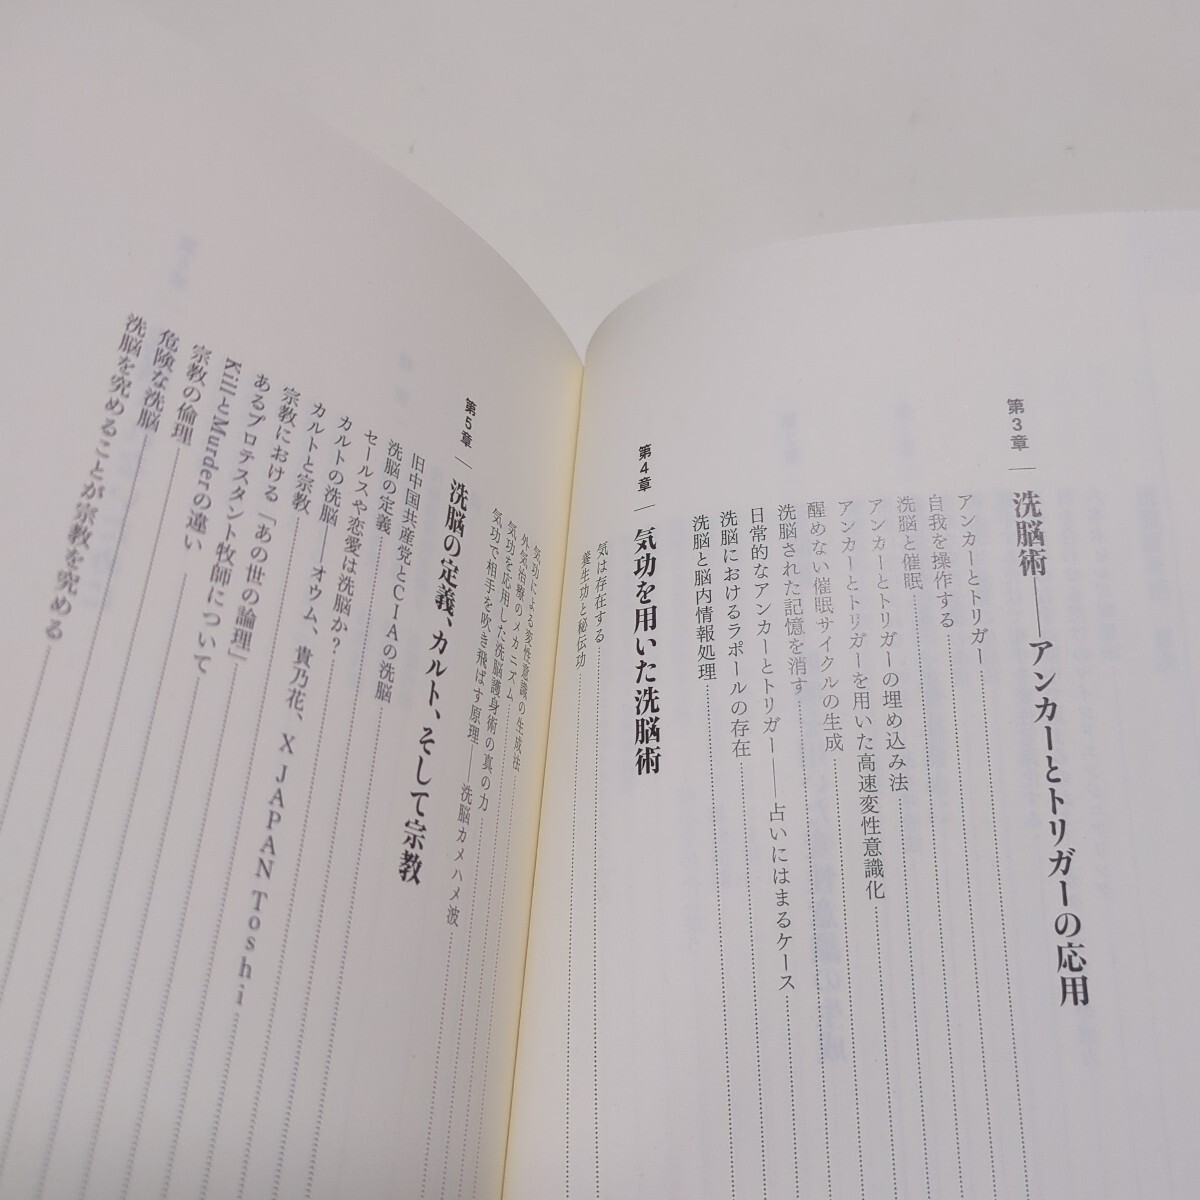 第3章 ― 洗脳術――アンカーとトリガーの応用
アンカーとトリガー
自我を操作する
洗脳と催眠
アンカーとトリガーの埋め込み法
アンカーとトリガーを用いた高速変性意識化
醒めない催眠サイクルの生成
洗脳された記憶を消す
日常的なアンカーとトリガー――占いにはまるケース
洗脳におけるラポールの存在
洗脳と脳内情報処理
第4章 ― 気功を用いた洗脳術
気は存在する
養生功と秘伝功
気功による変性意識の生成法
外気治療のメカニズム
気功を応用した洗脳護身術の真の力
気功で相手を吹き飛ばす原理――洗脳カメハメ波
第5章 ― 洗脳の定義、カルト、そして宗教
旧中国共産党とCIAの洗脳
洗脳の定義
セールスや恋愛は洗脳か?
カルトの洗脳――オウム、貴乃花、X JAPAN Toshi
カルトと宗教
宗教における「あの世の論理」
あるプロテスタント牧師について
KillとMurderの違い
宗教の倫理
危険な洗脳
洗脳を究めることが宗教を究める